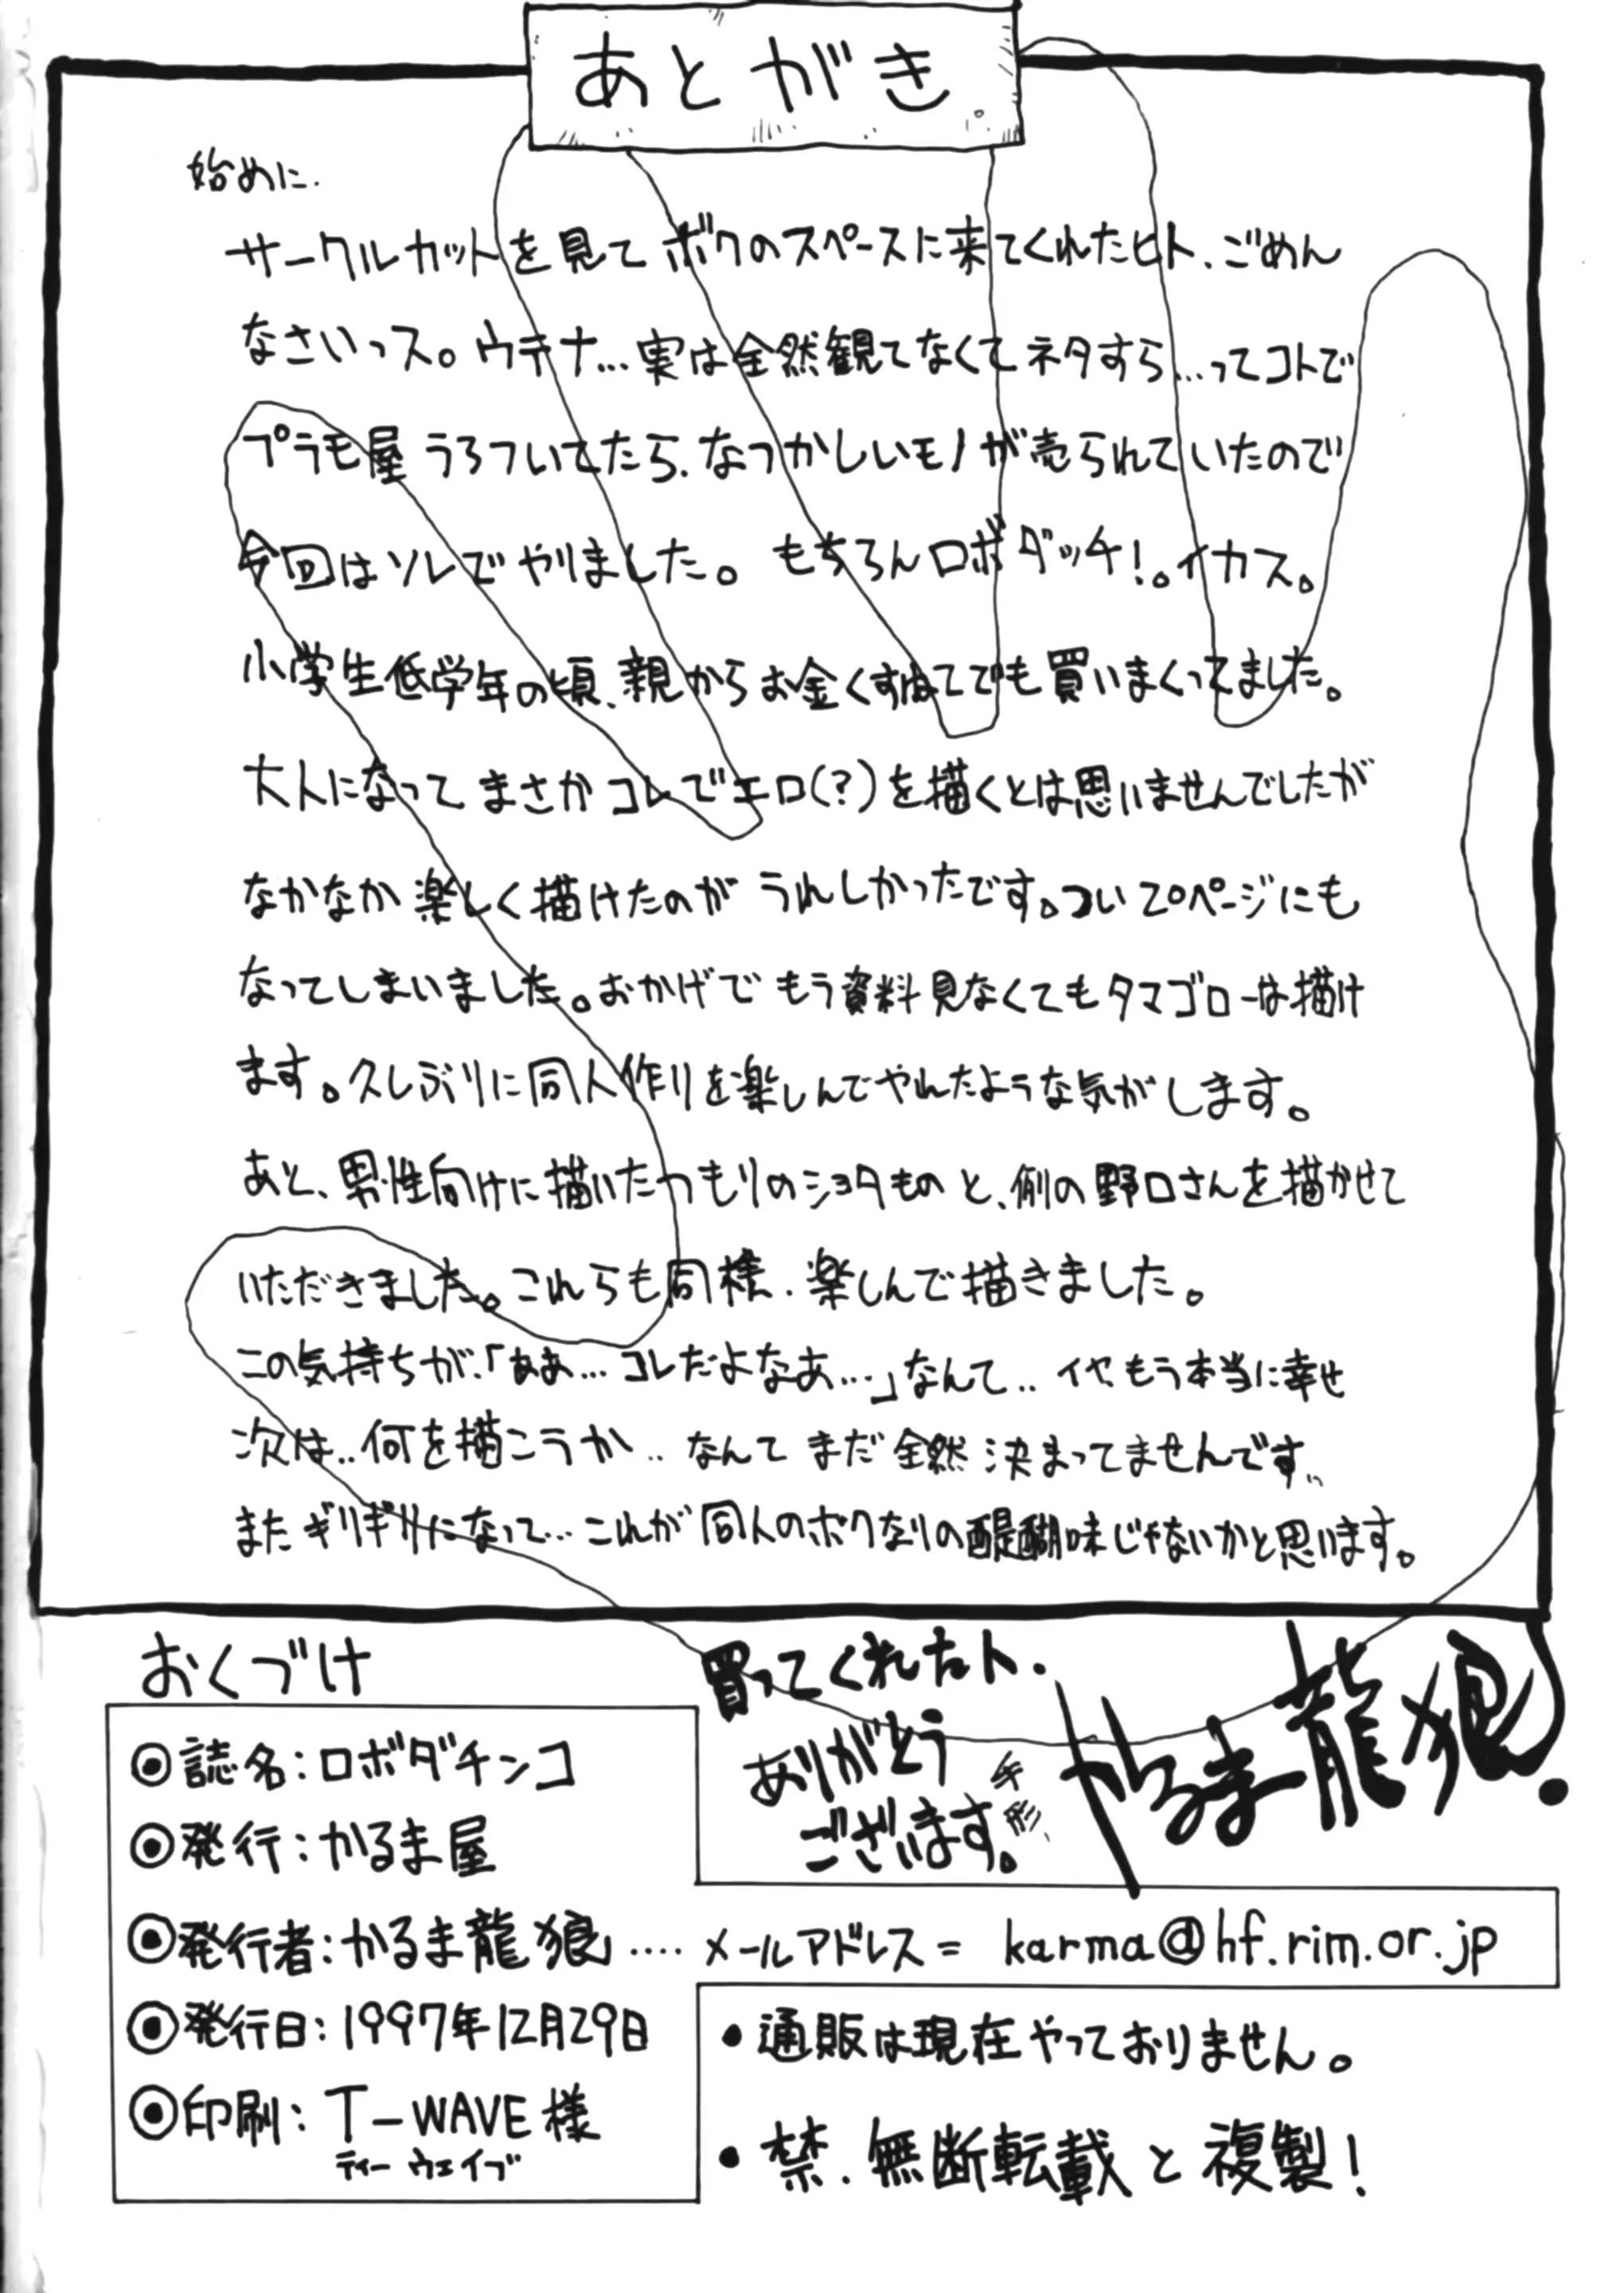 あとがき
始めに.
サークルカットを見て ボクのスペースに来てくれたヒト、ごめん
なさいっス。ウテナ…実は全然観てなくてネタすら…ってコトで
プラモ屋うろついてたら、なつかしいモノが売られていたので
今回はソレでやりました。もちろんロボダッチ!。イカス。
小学生低学年の頃、親からお金くすねてでも買いまくってました。
大人になって まさかコレでエロ(?)を描くとは思いませんでしたが
なかなか楽しく描けたのが うれしかったです。ついつい20ページにも
なってしまいました。おかげで もう資料見なくてもタマゴローは描け
ます。久しぶりに同人作りを楽しんでやれたような気がします。
あと、男性向けに描いたつもりのショタものと、例の野口さんを描かせて
いただきました。これらも同様、楽しんで描きました。
この気持ちが、「ああ…コレだよなあ…」なんて‥イヤもう本当に幸せ
次は‥何を描こうか‥なんて まだ全然決まってませんです、、
またギリギリになって…これが同人のボクなりの醍醐味じゃないかと思います。
おくづけ
◉誌名:ロボダチンコ
◉発行:かるま屋
◉発行者:かるま龍狼….メールアドレス= karma@hf.rim.or.jp
◉発行日:1997年12月29日
◉印刷:T-WAVE様
ティーウェイブ
買ってくれたヒト.
ありがとう
ございます。
手形、
かるま龍狼.
•通販は現在やっておりません。
•禁.無断転載と複製!